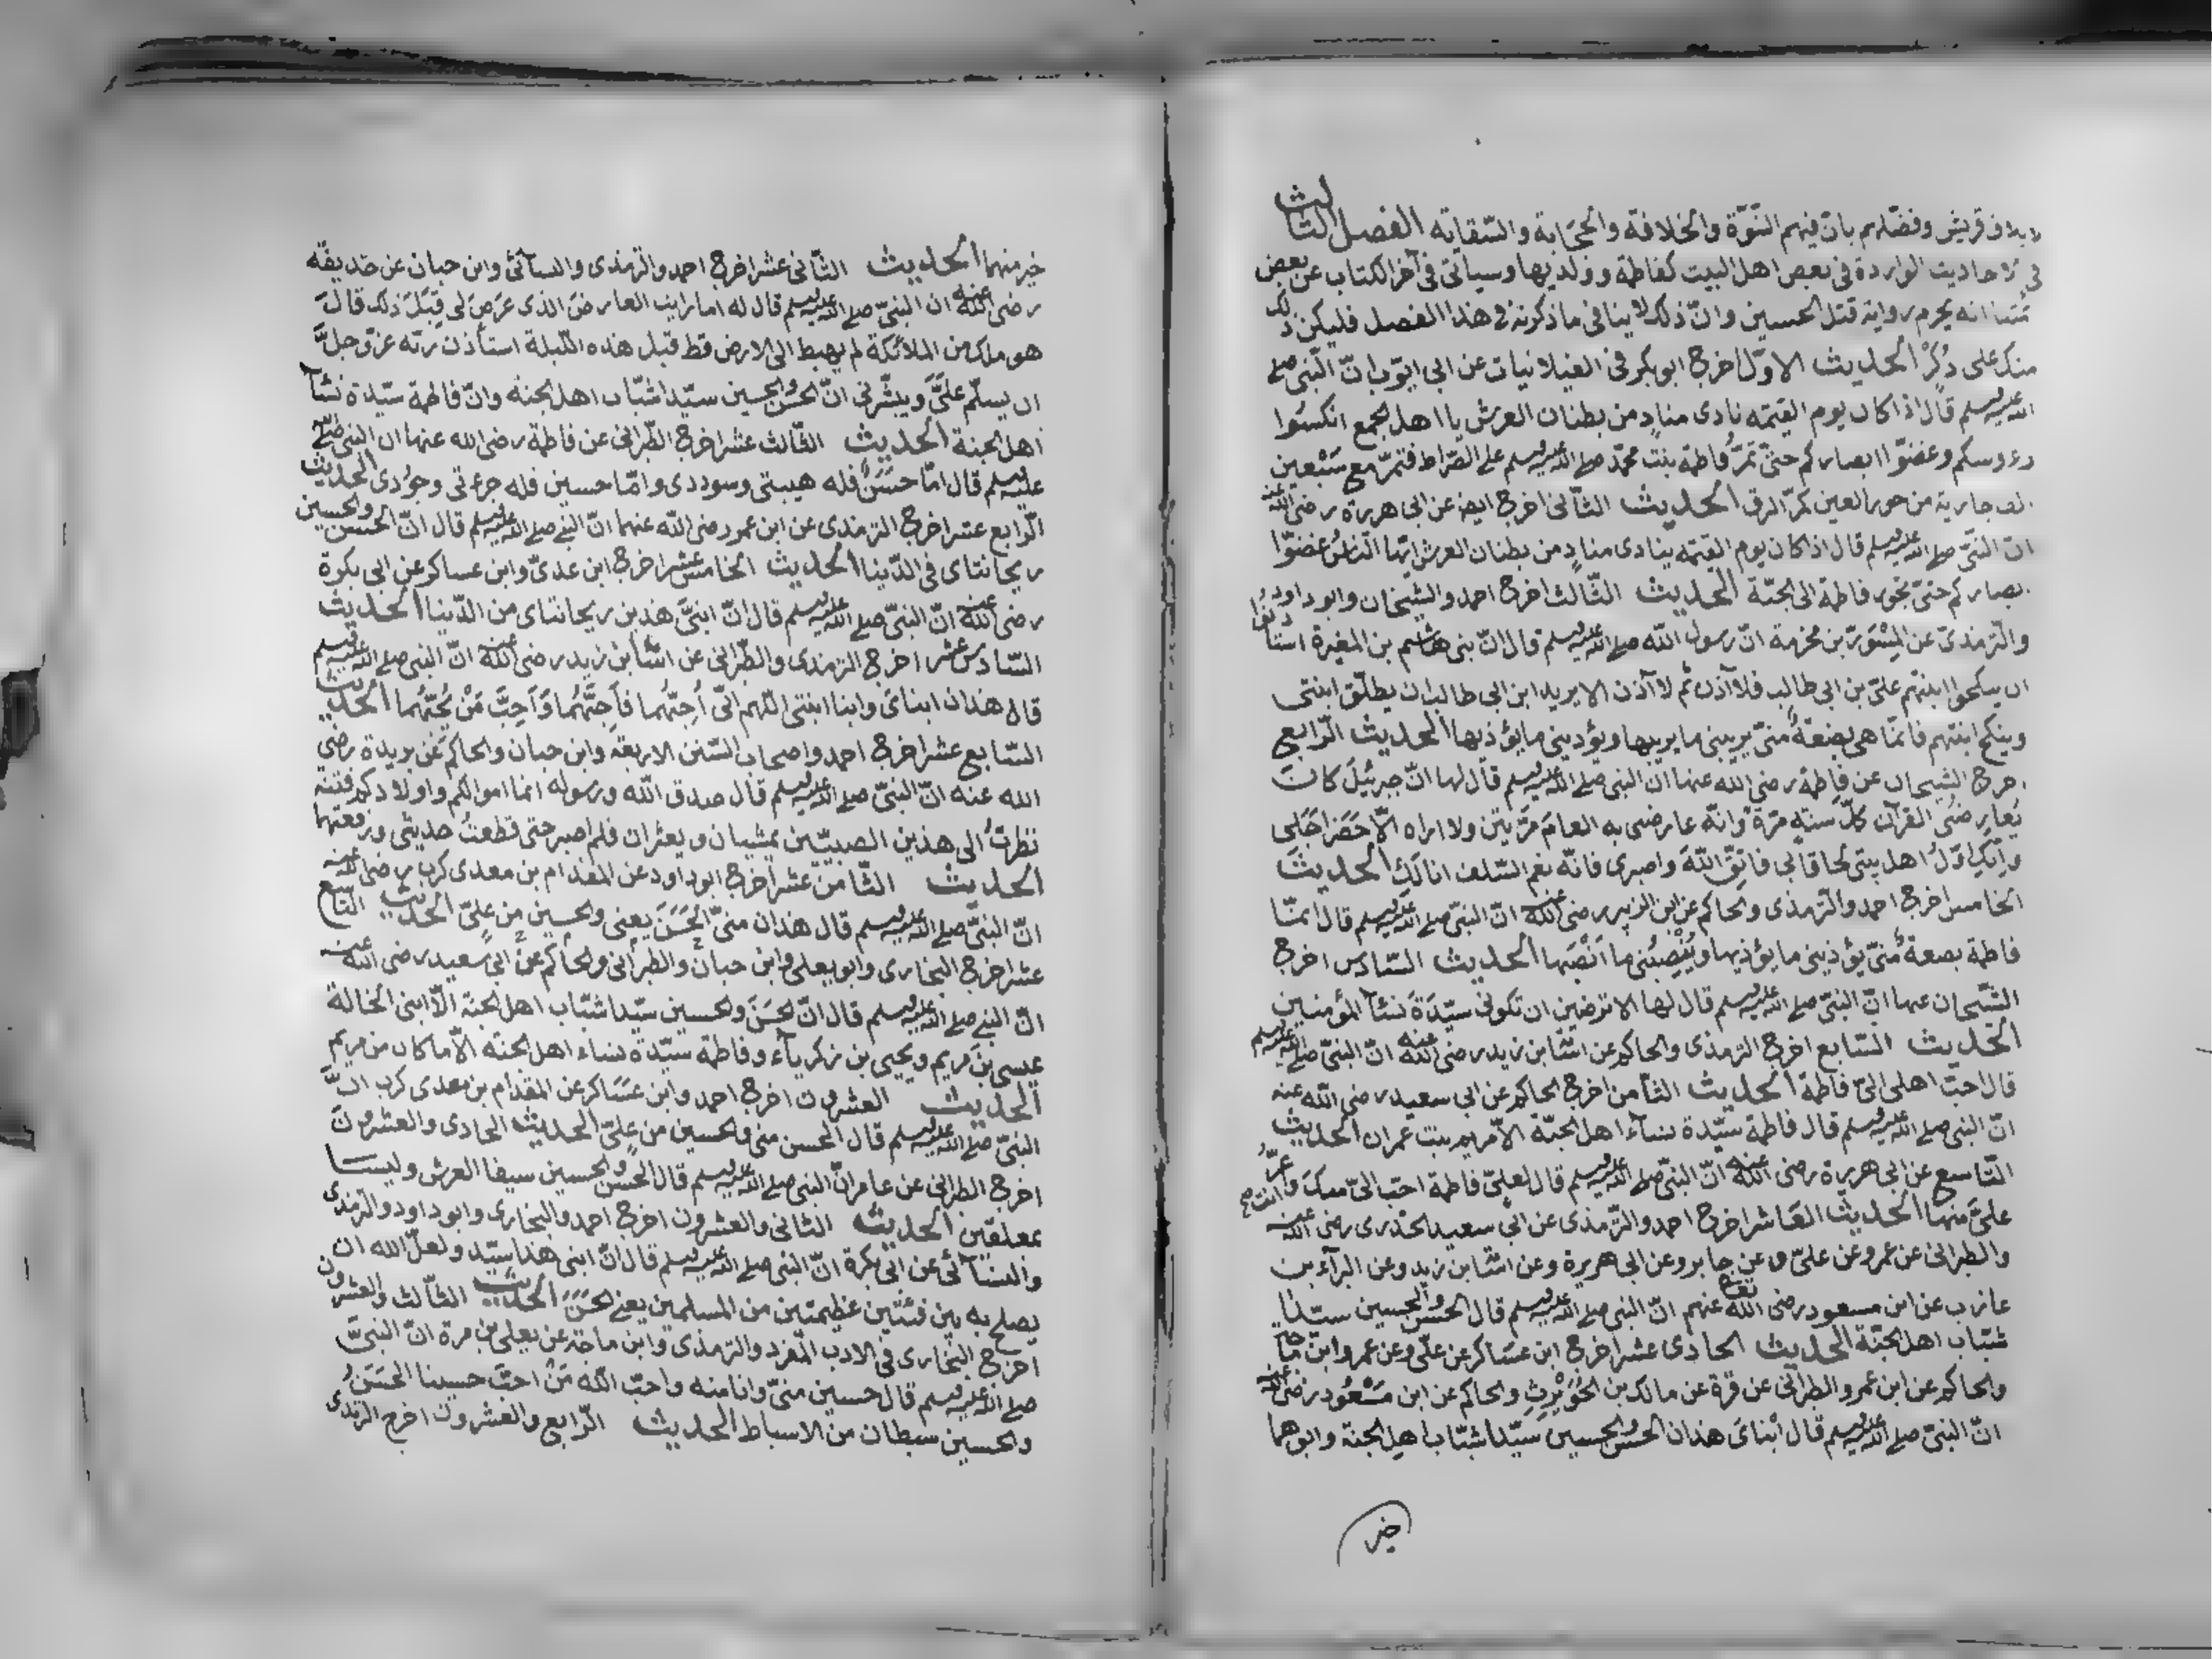 لايلاف قريش وفضلهم بان فيهم النبوّة والخلافة والحجابة والسّقاية الفصل الثالث
في الاحاديث الواردة في بعض اهل البيت كفاطمة وولديها وسياتي في آخر الكتاب عن بعض
ائمتنا انه يحرم رواية قتل الحسين وانّ ذلك لا ينافي ما ذكرته في هذا الفصل فليكن ذلك
منك على ذُكر الحديث الاوّل اخرج ابو بكر في الغيلانيات عن ابي ايّوب انّ النّبي صلى
الله عليه وسلم قال اذا كان يوم القيمة نادى منادٍ من بطنان العرش يا اهل الجمع انكسوا
رءوسكم وغضوّا ابصاركم حتىّ تمرّ فاطمة بنت محمّد صلى الله عليه وسلم على الصّراط فتمرّ مع سَبْعين
الف جارية من حور العين كمرّ البرق الحديث الثّاني اخرج ايضا عن ابي هريرة رضي الله عنه
انّ النّبيّ صلى الله عليه وسلم قال اذا كان يوم القيمة ينادي منادٍ من بطنان العرش ايّها النّاسُ غضوّا
ابصاركم حتىّ تجوز فاطمة الى الجنّة الحديث الثّالث اخرج احمد والشّيخان وابو داود
والترمذيّ عن المِسْوَر بن مخرمة انّ رسول الله صلى الله عليه وسلم قال انّ بني هاشم بن المغيرة استأذنوا
ان ينكحوا ابنتهم عليّ بن ابي طالب فلا آذن ثم لا آذن الا يريد ابن ابي طالب ان يطلّق ابنتي
وينكح ابنتهم فانمّا هي بضعَةٌ منيّ يريبني ما يريبها ويؤذيني ما يؤذيها الحديث الرّابع
اخرج الشيخان عن فاطمة رضي الله عنها ان النبي صلى الله عليه وسلم قال لها انّ جبرئيل كان
يُعارضُني القرآن كلّ سنة مرّة وانّه عارضني به العام مرّتين ولا اراه الّا حَضَر اجَلي
وانّكِ اوّل اهل بيتي لحاقا بي فاتقي الله واصبري فانّه نعم السّلف انا لَكِ الحديث
الخامس اخرج احمد والترمذي والحاكم عن ابن الزبير رضي الله عنه انّ النبيّ صلى الله عليه وسلم قال انمّا
فاطمة بضعةٌ منيّ يؤذيني ما يؤذيها ويُنْصِبُني ما انْصَبها الحديث السّادس اخرج
الشّيخان عنها انّ النبيّ صلى الله عليه وسلم قال لها الا ترضين ان تكوني سيّدَةَ نسآء المؤمنين
الحديث السّابع اخرج الترمذي والحاكم عن اسامة بن زيد رضي الله عنه انّ النبيّ صلى الله عليه وسلم
قال احبّ اهلي اليّ فاطمة الحديث الثّامن اخرج الحاكم عن ابي سعيد رضي الله عنه
انّ النبي صلى الله عليه وسلم قال فاطمة سيّدة نسآء اهل الجنّة الاّ مريم بنت عمران الحديث
التّاسع عن ابي هريرة رضي الله عنه انّ النبيّ صلى الله عليه وسلم قال لعليّ فاطمة احبّ اليّ منكَ وانت اعزّ
عليّ منها الحديث العَاشر اخرج احمد والتّرمذي عن ابي سعيد الخدري رضي الله عنه
والطبراني عن عمر وعن عليّ وعن جابر وعن ابي هريرة وعن اسامة بن زيد وعن البرآء بن
عازب عن ابن مسعود رضي الله تعالى عنهم انّ النبي صلى الله عليه وسلم قال الحسن والحسين سيّدا
شبّاب اهل الجنّة الحديث الحادى عشر اخرج ابن عسَاكر عن عليّ وعن عمر وابن ماجة
والحاكم عن ابن عمر والطبراني عن قرة عن مالك بن الحُوَيْرثِ والحاكم عن ابن مَسْعُود رضي الله عنه
انّ النبيّ صلى الله عليه وسلم قال ابْنايَ هذان الحسن والحسين سيّدا شبّاب اهل الجنة وابوهما
خير
خير منهما الحديث الثّاني عشر اخرج احمد والترمذي والنسآئي وابن حبان عن حذيفة
رضي الله عنه ان النبيّ صلى الله عليه وسلم قال له اما رايت العارضَ الذي عرَضَ لي قبَلَ ذلك قالَ
هو ملك من الملائكة لم يهبط الى الارض قط قبل هذه اللّيلة استأذن ربّه عزّ وجلّ
ان يسلّم عليَّ ويبشّرني انّ الحسن والحسين سيّدا شبّاب اهل الجنة وانّ فاطمة سيّدة نسآء
اهل الجنة الحديث الثّالث عشر اخرج الطّبراني عن فاطمة رضي الله عنها ان النبي صلى الله
عليه وسلم قال امّا حسَنٌ فله هيبتي وسوددي وامّا حسين فله جرءتي وجُودي الحديث
الرّابع عشر اخرج الترمذي عن ابن عمر رضي الله عنهما انّ النبي صلى الله عليه وسلم قال انّ الحسن والحسين
ريحانتاي في الدّنيا الحديث الخامس عشر اخرج ابن عديّ وابن عساكر عن ابي بكرة
رضي الله عنه انّ النبيّ صلى الله عليه وسلم قال انّ ابنيّ هذين ريحانتاي من الدّنيا الحديث
السّادس عشر اخرج الترمذي والطّبراني عن اسامة بن زيد رضي الله عنه انّ النبي صلى الله عليه وسلم
قال هذان ابنايَ وابنا ابنتي اللّهم انّي اُحِبّهُما فَاَحِبَّهُما وَاَحِبَّ مَنْ يُحبّهُما الحديث
السّابع عشر اخرج احمد واصحاب السّنن الاربعة وابن حبان والحاكم عن بريدة رضي
الله عنه انّ النبيّ صلى الله عليه وسلم قال صدق الله ورسوله انما اموالكم واولادكم فتنة
نظرتُ الى هذين الصبيّين يمشيان ويعثران فلم اصبر حتى قطعتُ حديثي ورفعتهما
الحديث الثّامن عشر اخرج ابو داود عن المقدام بن معدي كرب رضي الله عنه
انّ النبيّ صلى الله عليه وسلم قال هذان منيّ الحَسَنَ يعني والحسين من عليّ الحديث التاسع
عشر اخرج البخاري وابو يعلى وابن حبان والطبراني والحاكم عن ابي سعيد رضي الله عنه
انّ النبي صلى الله عليه وسلم قال انّ الحسَنَ والحسين سيّدا شبّاب اهل الجنة الاّ ابني الخالة
عيسى بن مريم ويحيى بن زكريآء وفاطمة سيّدة نساء اهل الجنة الاّ ما كان من مريم
الحديث العشرون اخرج احمد وابن عسَاكر عن المقدام بن معدي كرب انّ
النبيّ صلى الله عليه وسلم قال الحسن منيّ والحسين من عليّ الحديث الحادي والعشرون
اخرج الطبراني عن عامر انّ النبي صلى الله عليه وسلم قال الحسن والحسين سيفا العرش وليسا
بمعلقين الحديث الثاني والعشرون اخرج احمد والبخاري وابو داود والترمذي
والنسآئي عن ابي بكرة انّ النبي صلى الله عليه وسلم قال انّ ابني هذا سيّد ولعلّ الله ان
يصلح به بين فئتين عظيمتين من المسلمين يعني الحسَنَ الحديث الثّالث والعشرون
اخرج البخاري في الادب المفرد والترمذي وابن ماجة عن يعلى بن مرة انّ النبيَّ
صلى الله عليه وسلم قال حسين منيّ وانا منه واحبّ الله مَنْ احبّ حسينا الحسَنُ
والحسين سبطان من الاسباط الحديث الرّابع والعشرون اخرج الترمذي